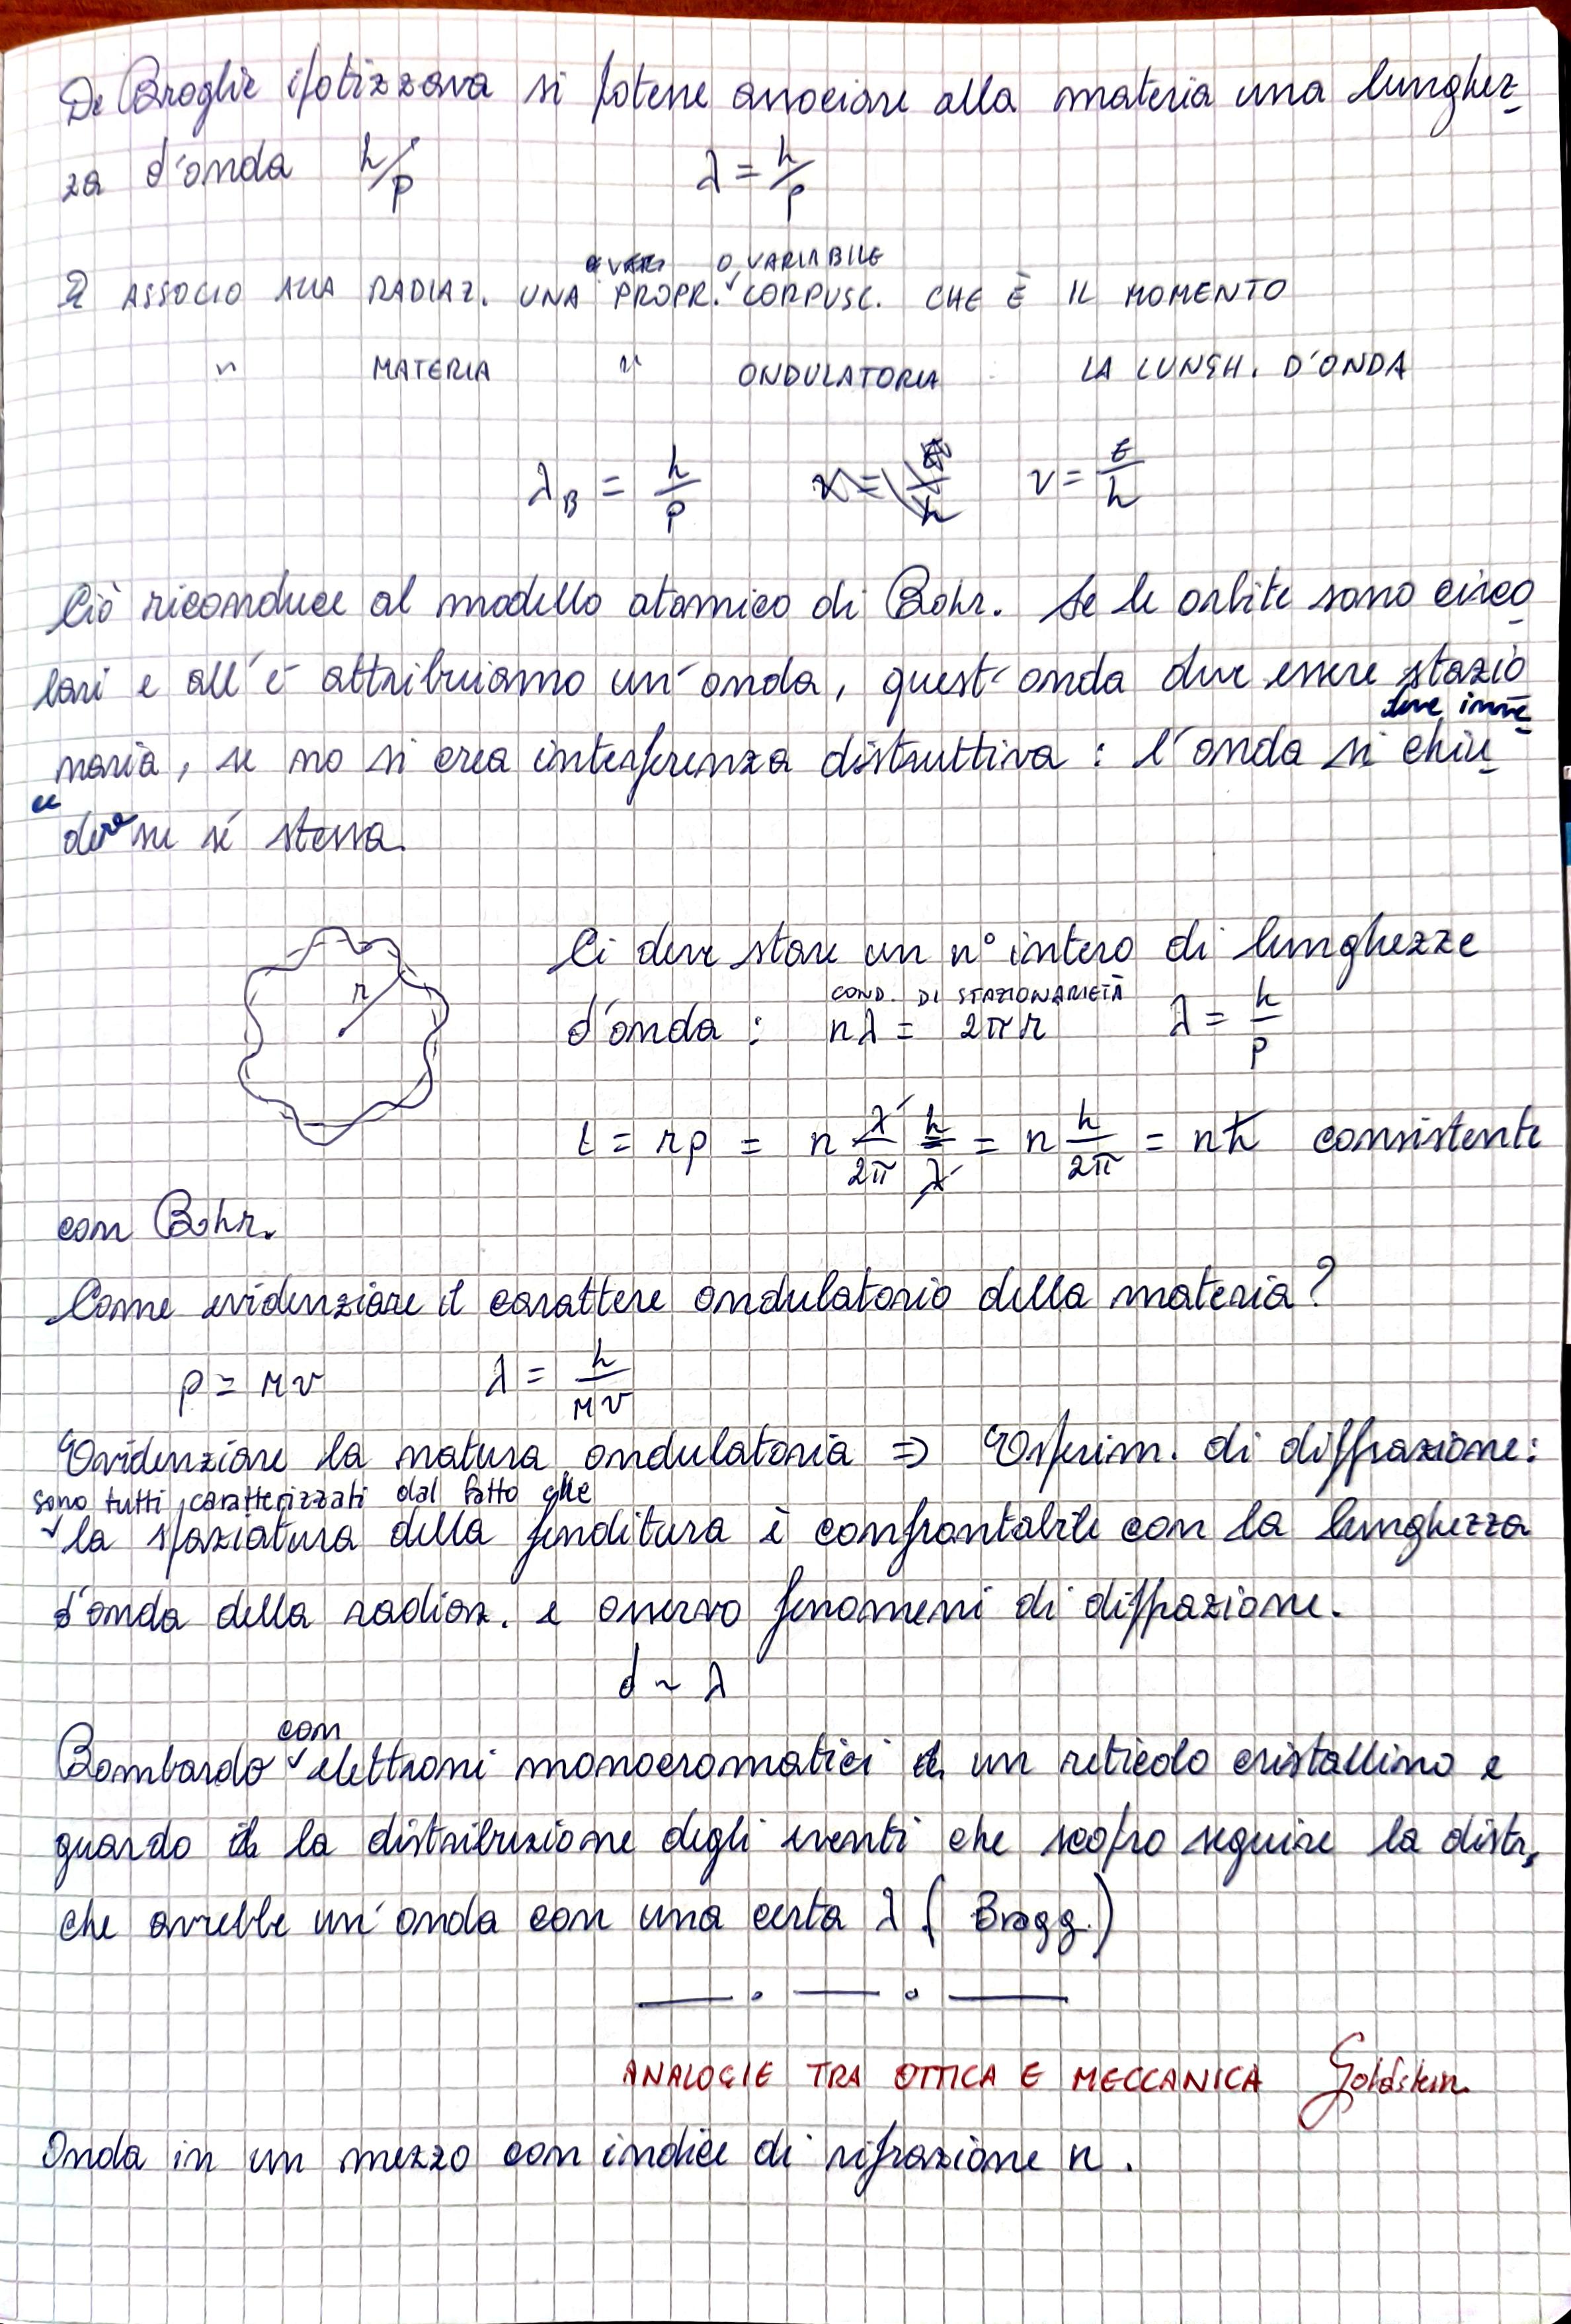 De Broglie ipotizzava si potesse associare alla materia una lunghez-
za d'onda h/p λ = h/p
O VARIABILE
ASSOCIO ALLA RADIAZ. UNA PROPR. CORPUSC. CHE È IL MOMENTO
" MATERIA " ONDULATORIA LA LUNGH. D'ONDA
λ_B = h/p ν = E/h
Ciò riconduce al modello atomico di Bohr. Se le orbite sono circo-
lari e all'e⁻ attribuiamo un'onda, quest'onda deve essere stazio-
naria, se no si crea interferenza distruttiva: l'onda si deve invece chiu-
dere su sé stessa.
r
Ci deve stare un n° intero di lunghezze
COND. DI STAZIONARIETÀ
d'onda: nλ = 2πr λ = h/p
L = rp = n λ/2π h/λ = n h/2π = nħ consistente
con Bohr.
Come evidenziare il carattere ondulatorio della materia?
p = Mv λ = h/Mv
Evidenziare la natura ondulatoria ⇒ Esperim. di diffrazione:
sono tutti caratterizzati dal fatto che
la spaziatura della fenditura è confrontabile con la lunghezza
d'onda della radiaz. e osservo fenomeni di diffrazione.
d ~ λ
Bombardo con elettroni monocromatici un reticolo cristallino e
guardo la distribuzione degli eventi che scopro seguire la distr.
che avrebbe un'onda con una certa λ (Bragg.)
ANALOGIE TRA OTTICA E MECCANICA Goldstein
Onda in un mezzo con indice di rifrazione n.